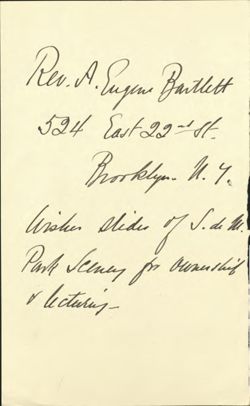 Rev. A. Eugene Bartlett
524 East 22nd St.
Brooklyn. N. Y.
Wishes slides of S. de M.
Park Scenery for ownership
& lecturing